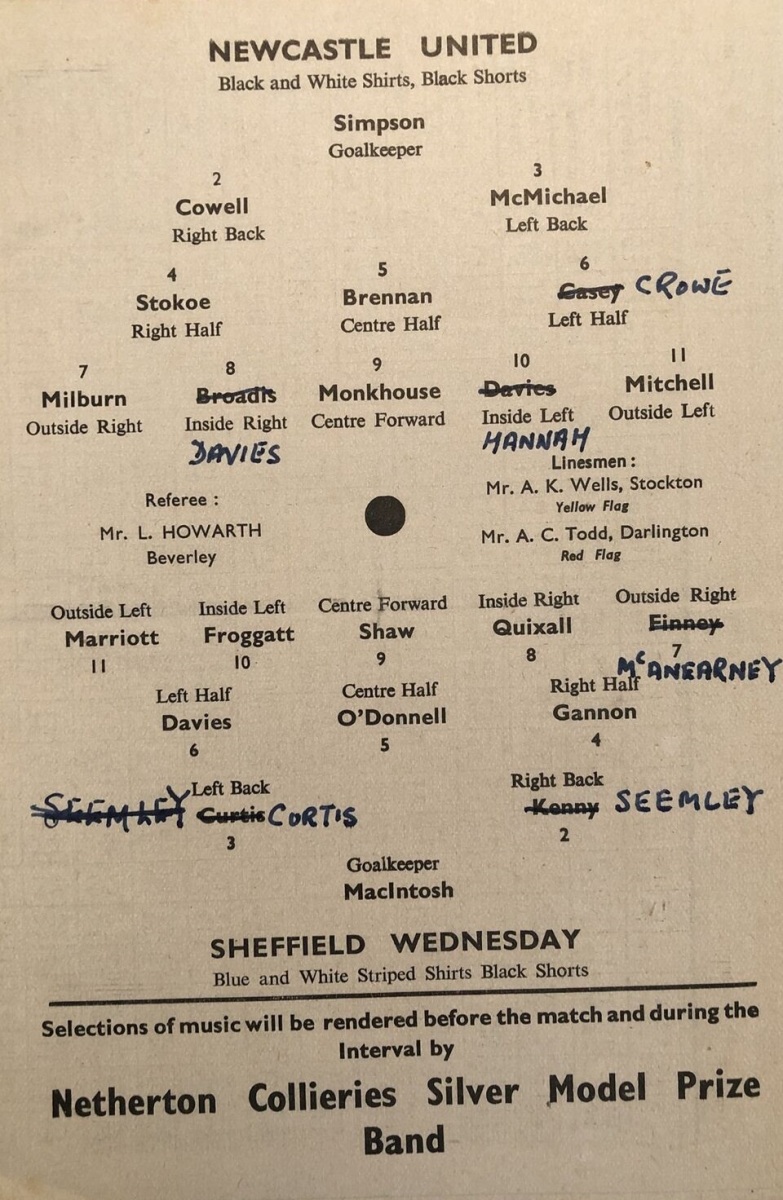 NEWCASTLE UNITED
Black and White Shirts, Black Shorts
Simpson
Goalkeeper
2 3
Cowell McMichael
Right Back Left Back
4 5 6
Stokoe Brennan Casey CROWE
Right Half Centre Half Left Half
7 8 9 10 11
Milburn Broadis Monkhouse Davies Mitchell
Outside Right Inside Right Centre Forward Inside Left Outside Left
DAVIES HANNAH
Linesmen :
Referee : Mr. A. K. Wells, Stockton
Yellow Flag
Mr. L. HOWARTH Mr. A. C. Todd, Darlington
Beverley Red Flag
Outside Left Inside Left Centre Forward Inside Right Outside Right
Marriott Froggatt Shaw Quixall Finney
11 10 9 8 7
McANEARNEY
Left Half Centre Half Right Half
Davies O'Donnell Gannon
6 5 4
Left Back Right Back
SEEMLEY Curtis CURTIS Kenny SEEMLEY
3 2
Goalkeeper
MacIntosh
SHEFFIELD WEDNESDAY
Blue and White Striped Shirts Black Shorts
Selections of music will be rendered before the match and during the
Interval by
Netherton Collieries Silver Model Prize
Band